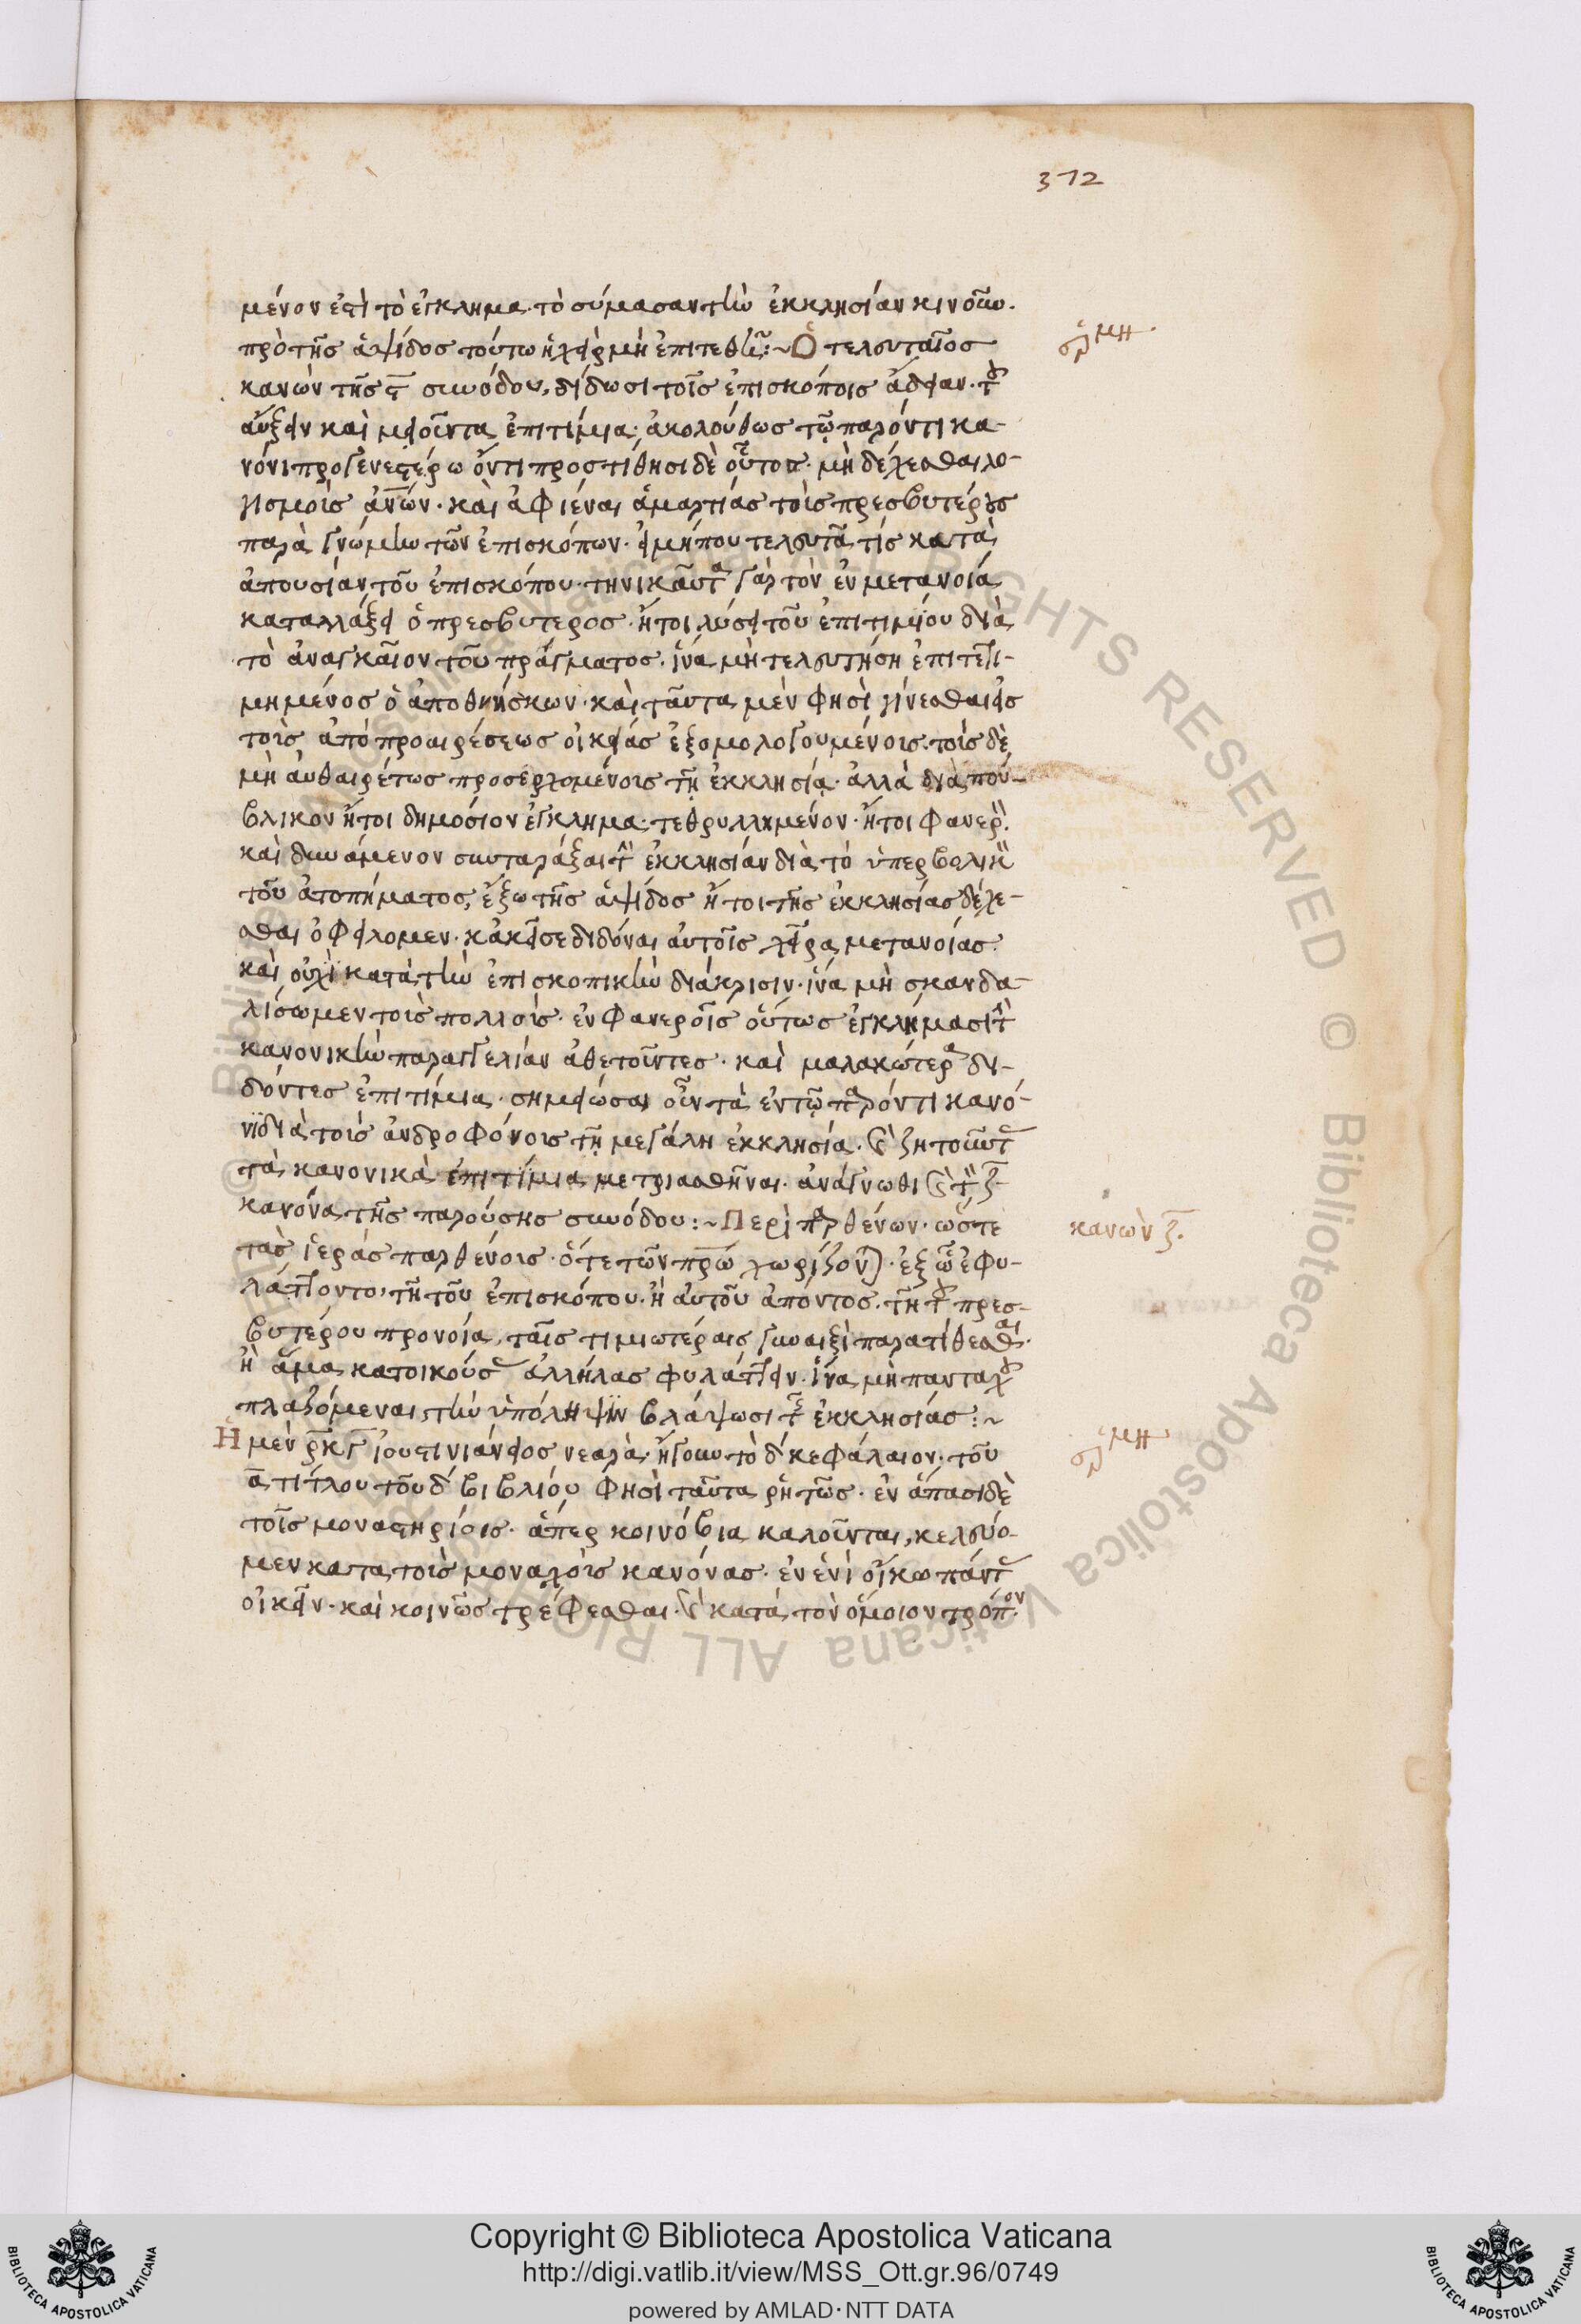 372
μένον ἐστὶ τὸ ἔγκλημα· τὸ σύμπασαν τὴν ἐκκλησίαν κινοῦν·
πρὸ τῆς ἁψίδος τούτω ἡ χεὶρ μὴ ἐπιτεθῇ:~ Ὁ τελευταῖος
κανὼν τῆς ϛ συνόδου, δίδωσι τοῖς ἐπισκόποις ἄδειαν· τοῦ
ἑρμη
αὔξειν καὶ μειοῦν τὰ ἐπιτίμια· ἀκολούθως τῷ παρόντι κα-
νόνι προγενεστέρω ὄντι προστίθησι δὲ οὗτος· μὴ δέχεσθαι λο-
γισμοὺς ἀνων· καὶ ἀφιέναι ἁμαρτίας τοὺς πρεσβυτέρους
παρὰ γνώμην τῶν ἐπισκόπων· εἰ μήπου τελευτᾶ τίς κατὰ
ἀπουσίαν τοῦ ἐπισκόπου· τηνικαῦτα γὰρ τὸν ἐν μετανοία
καταλλάξει ὁ πρεσβύτερος· ἤτοι λύσει τοῦ ἐπιτιμίου διὰ
τὸ ἀναγκαῖον τοῦ πράγματος· ἵνα μὴ τελευτήση ἐπιτετι-
μημένος ὁ ἀποθνήσκων· καὶ ταῦτα μὲν φησὶ γίνεσθαι εἰς
τοὺς ἀπὸ προαιρέσεως οἰκείας ἐξομολογουμένους· τοὺς δὲ
μὴ αὐθαιρέτως προσερχομένους τῇ ἐκκλησίᾳ· ἀλλὰ διὰ πού-
βλικον ἤτοι δημόσιον ἔγκλημα· τεθρυλλημένον· ἤτοι φανερὸν·
καὶ δυνάμενον συνταράξαι τὴν ἐκκλησίαν διὰ τὸ ὑπερβολικὸν
τοῦ ἀτοπήματος, ἔξω τῆς ἁψίδος ἤτοι τῆς ἐκκλησίας δέχε-
σθαι ὀφείλομεν· κἀκεῖσε διδόναι αὐτοῖς χεῖρα μετανοίας·
καὶ οὐχὶ κατὰ τὴν ἐπισκοπικὴν διάκρισιν· ἵνα μὴ σκανδα-
λίσωμεν τοὺς πολλούς· ἐν φανεροῖς οὕτως ἐγκλήμασι τὴν
κανονικὴν παραγγελίαν ἀθετοῦντες· καὶ μαλακώτερα δι-
δόντες ἐπιτίμια· σημείωσαι οὖν τὰ ἐν τῷ παρόντι κανό-
νι διὰ τοὺς ἀνδροφόνους τῇ μεγάλη ἐκκλησία· καὶ ζητοῦντας
τὰ κανονικὰ ἐπιτίμια μετριασθῆναι· ἀνάγνωθι καὶ τὸν ζ
κανόνα τῆς παρούσης συνόδου:~ Περὶ παρθένων· ὥστε
κανὼν ζ.
τὰς ἱερὰς παρθένους· ὅτε τῶν πρων χωρίζονται· ἐξ ὧν ἐφυ-
λάττοντο, τῇ τοῦ ἐπισκόπου· ἢ αὐτοῦ ἀπόντος· τῇ τοῦ πρεσ-
βυτέρου προνοία, ταῖς τιμιωτέραις γυναιξὶ παρατίθεσθαι·
ἢ ἅμα κατοικούσας ἀλλήλας φυλάττειν· ἵνα μὴ πανταχοῦ
πλαζόμεναι, τὴν ὑπόληψιν βλάψωσι τῆς ἐκκλησίας:~
Ἡ μὲν ρκγ ἰουστινιάνειος νεαρὰ· ἤγουν τὸ δ κεφάλαιον· τοῦ
ἑρμη
α τίτλου τοῦ δ βιβλίου φησὶ ταῦτα ῥητῶς· ἐν ἅπασι δὲ
τοῖς μοναστηρίοις· ἅπερ κοινόβια καλοῦνται, κελεύο-
μεν κατὰ τοὺς μοναχοὺς κανόνας· ἐν ἑνὶ οἴκω πάντας
οἰκεῖν· καὶ κοινῶς τρέφεσθαι· καὶ κατὰ τὸν ὅμοιον τρόπον·
© Biblioteca Apostolica Vaticana ALL RIGHTS RESERVED
Copyright © Biblioteca Apostolica Vaticana
http://digi.vatlib.it/view/MSS_Ott.gr.96/0749
powered by AMLAD·NTT DATA
BIBLIOTECA APOSTOLICA VATICANA
BIBLIOTECA APOSTOLICA VATICANA